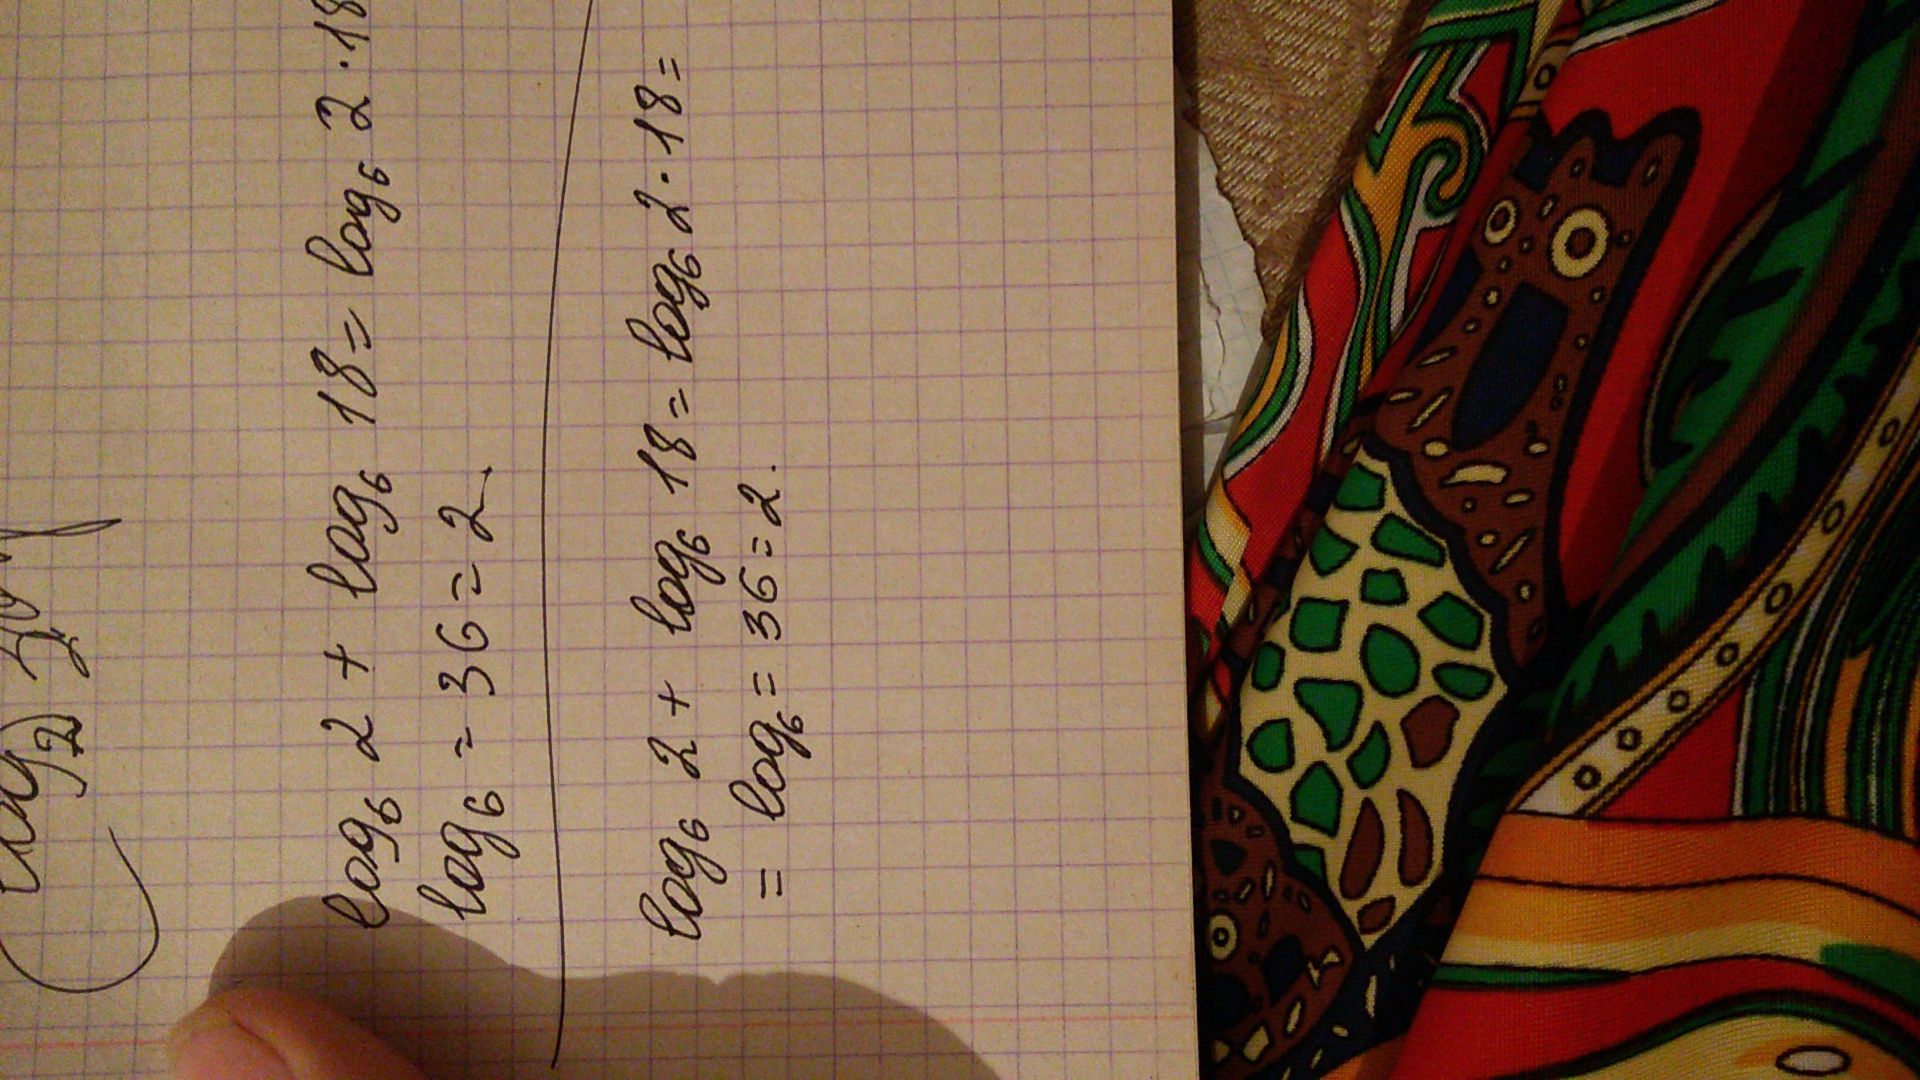 log₆ 2 + log₆ 18 = log₆ 2 · 18
log₆ = 36 = 2.
log₆ 2 + log₆ 18 = log₆ 2 · 18 =
= log₆ = 36 = 2.